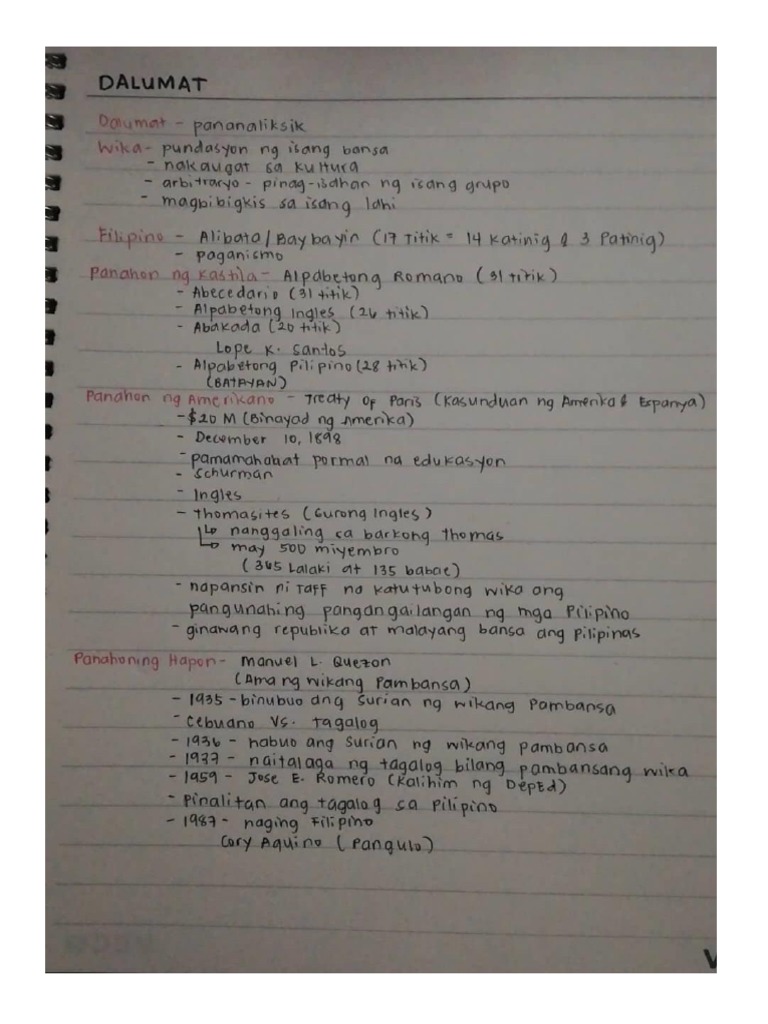 DALUMAT
Dalumat - pananaliksik
Wika - pundasyon ng isang bansa
- nakaugat sa kultura
- arbitraryo - pinag-isahan ng isang grupo
- magbibigkis sa isang lahi
Filipino - Alibata/Baybayin (17 Titik = 14 Katinig & 3 Patinig)
- paganismo
Panahon ng Kastila - Alpabetong Romano (31 titik)
- Abecedario (31 titik)
- Alpabetong Ingles (26 titik)
- Abakada (20 titik)
Lope K. Santos
- Alpabetong Pilipino (28 titik)
(BATAYAN)
Panahon ng Amerikano - Treaty Of Paris (Kasunduan ng Amerika & Espanya)
- $20 M (Binayad ng Amerika)
- December 10, 1898
- pamamahabat pormal na edukasyon
- Schurman
- Ingles
- Thomasites (Gurong Ingles)
↳ nanggaling sa barkong Thomas
↳ may 500 miyembro
(365 Lalaki at 135 babae)
- napansin ni TAFF na katutubong wika ang
pangunahing pangangailangan ng mga Pilipino
- ginawang republika at malayang bansa ang Pilipinas
Panahoning Hapon - Manuel L. Quezon
(Ama ng wikang Pambansa)
- 1935 - binubuo ang Surian ng wikang Pambansa
- Cebuano Vs. Tagalog
- 1936 - nabuo ang Surian ng wikang pambansa
- 1937 - naitalaga ng tagalog bilang pambansang wika
- 1959 - Jose E. Romero (Kalihim ng DepEd)
- Pinalitan ang tagalog sa Pilipino
- 1987 - naging Filipino
Cory Aquino (Pangulo)
V